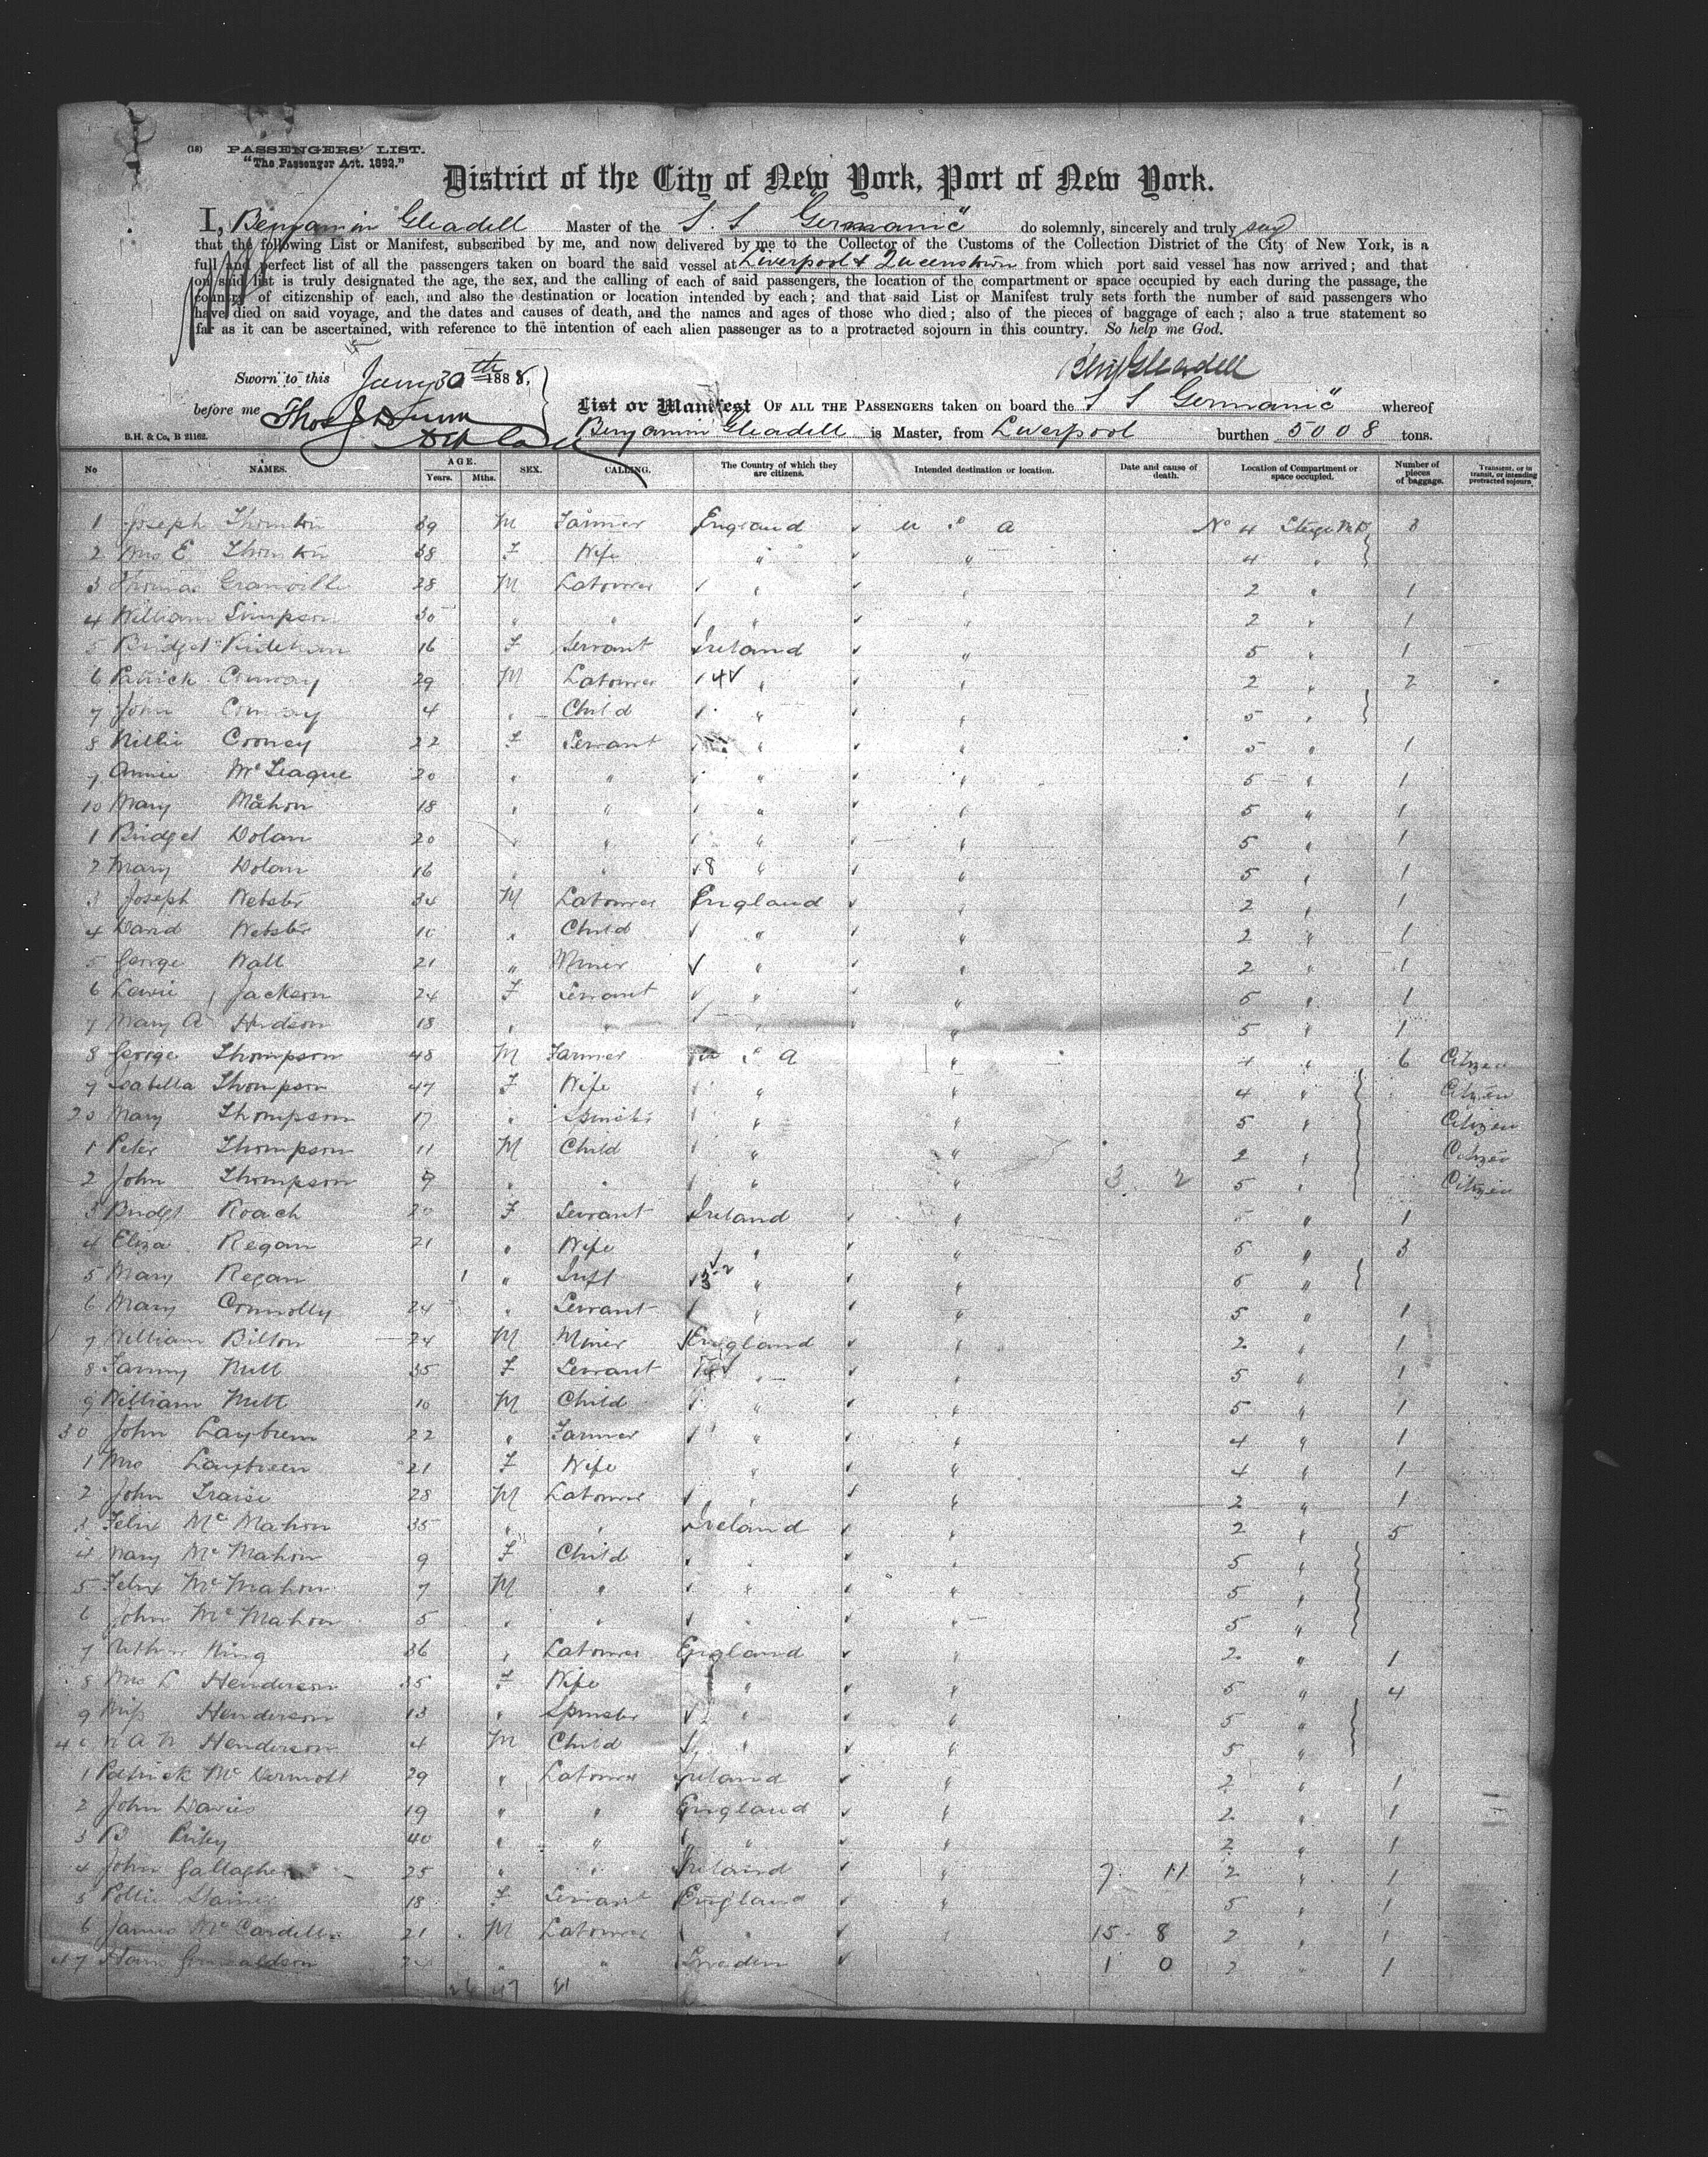 (18) PASSENGERS' LIST.
"The Passenger Act. 1892."
District of the City of New York, Port of New York.
I, Benjamin Gleadell Master of the S. S "Germanic" do solemnly, sincerely and truly say
that the following List or Manifest, subscribed by me, and now delivered by me to the Collector of the Customs of the Collection District of the City of New York, is a
full and perfect list of all the passengers taken on board the said vessel at Liverpool & Queenstown from which port said vessel has now arrived; and that
on said list is truly designated the age, the sex, and the calling of each of said passengers, the location of the compartment or space occupied by each during the passage, the
country of citizenship of each, and also the destination or location intended by each; and that said List or Manifest truly sets forth the number of said passengers who
have died on said voyage, and the dates and causes of death, and the names and ages of those who died; also of the pieces of baggage of each; also a true statement so
far as it can be ascertained, with reference to the intention of each alien passenger as to a protracted sojourn in this country. So help me God.
Benj Gleadell
Sworn to this Jany 30th 1888,
before me Thos J Dunn
List or Manifest OF ALL THE PASSENGERS taken on board the S S Germanic" whereof
Benjamin Gleadell is Master, from Liverpool burthen 5008 tons.
B.H. & Co, B 21162.
No NAMES. AGE. Years. Mths. SEX. CALLING. The Country of which they are citizens. Intended destination or location. Date and cause of death. Location of Compartment or space occupied. Number of pieces of baggage. Transient, or in transit, or intending protracted sojourn
1 Joseph Thornton 39 M Farmer England U S A No 4 3
2 Mrs E Thornton 38 F Wife " " 4 "
3 Thomas Granville 28 M Labourer " " 2 " 1
4 William Simpson 30 " " " " 2 " 1
5 Bridget 16 F Servant Ireland " 5 " 1
6 Patrick Conway 29 M Labourer 4 " " 2 " 2
7 John Conway 4 " Child " " 5 "
8 Nellie Cooney 22 F Servant " " 5 " 1
9 Annie McTeague 20 " " " " 5 " 1
10 Mary Mahon 18 " " " " 5 " 1
1 Bridget Dolan 20 " " " " 5 " 1
2 Mary Dolan 16 " " 8 " " 5 " 1
3 Joseph Webster 34 M Labourer England " 2 " 1
4 David Webster 10 " Child " " 2 " 1
5 George Wall 21 " Miner " " 2 " 1
6 Jackson 24 F Servant " " 5 " 1
7 Mary A Hudson 18 " " " " 5 " 1
8 George Thompson 48 M Farmer U S A " 4 " 6 Citizen
9 Isabella Thompson 47 F Wife " " 4 " Citizen
20 Mary Thompson 17 " Spinster " " 5 " Citizen
1 Peter Thompson 11 M Child " " 2 " Citizen
2 John Thompson 9 " " " " 3 2 5 " Citizen
3 Bridgt Roach 20 F Servant Ireland " 5 " 1
4 Eliza Regan 21 " Wife " " 5 " 3
5 Mary Regan 1 " Inft " " 5 "
6 Mary Connolly 24 " Servant " " 5 " 1
7 William Bilton 24 M Miner England " 2 " 1
8 Fanny Nutt 35 F Servant " " 5 " 1
9 William Nutt 10 M Child " " 5 " 1
30 John 22 " Farmer " " 4 " 1
1 Mrs 21 F Wife " " 4 " 1
2 John 28 M Labourer " " 2 " 1
3 Felix McMahon 35 " " Ireland " 2 " 5
4 Mary McMahon 9 F Child " " 5 "
5 Felix McMahon 7 M " " " 5 "
6 John McMahon 5 " " " " 5 "
7 Arthur King 36 " Labourer England " 2 " 1
8 Mrs L Henderson 35 F Wife " " 5 " 4
9 Miss Henderson 13 " Spinster " " 5 "
40 Henderson 4 M Child " " 5 "
1 Patrick McDermott 29 " Labourer Ireland " 2 " 1
2 John Davies 19 " " England " 2 " 1
3 B 40 " " " " 2 " 1
4 John Gallagher 25 " " Ireland " 7 11 2 " 1
5 Pollie 18 F Servant England " 5 " 1
6 James 21 M Labourer " " 15 8 2 " 1
47 " " Sweden 1 0 2 " 1
26 47